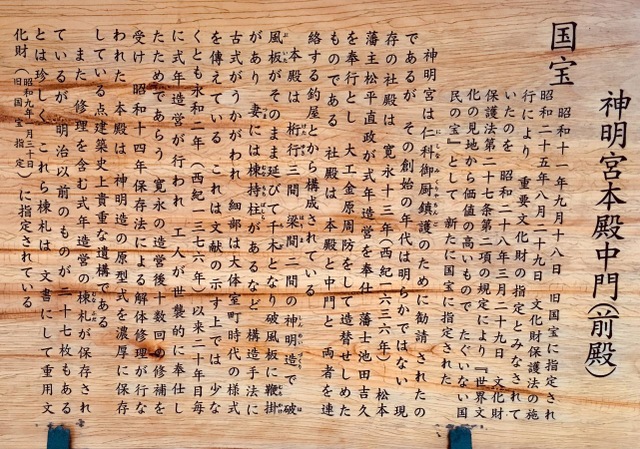 国宝
神明宮本殿中門（前殿）
昭和十一年九月十八日　旧国宝に指定され
昭和二十五年八月二十九日　文化財保護法の施
行により　重要文化財の指定とみなされて
いたのを　昭和二十八年三月二十九日　文化財
保護法第二十七条第二項の規定により『世界文
化の見地から価値の高いもので　たぐいない国
民の宝』として　新たに国宝に指定された
神明宮は仁科御厨鎮護のために勧請されたの
であるが　その創始の年代は明らかではない　現
存の社殿は　寛永十三年（西紀一六三六年）　松本
藩主松平直政が式年造営を奉仕し　藩士池田吉久
を奉行とし　大工金原周防をして造替せしめた
ものである　社殿は　本殿と中門と　両者を連
絡する釣屋とから構成されている
本殿は　桁行三間　梁間二間の神明造で　破
風板がそのまま延びて千木となり破風板に鞭掛
があり　妻には棟持柱があるなど　構造手法に
古式がうかがわれ　細部は大体室町時代の様式
を傳えている　これは文献の示す上では　少な
くとも永和二年（西紀一三七六年）以来二十年目毎
に式年造営が行われ　工人が世襲的に奉仕し
たためであらう　寛永の造営後十数回の修補を
受け　昭和十四年保存法による解体修理が行な
われた　本殿は　神明造の原型式を濃厚に保存
している点建築史上貴重な遺構である
また　修理を含む式年造営の棟札が保存され
ているが　明治以前のものが二十七枚もある
とは珍しく　これら棟札は　文書にして重用文
化財（昭和九年一月三十日旧国宝指定）に指定されている